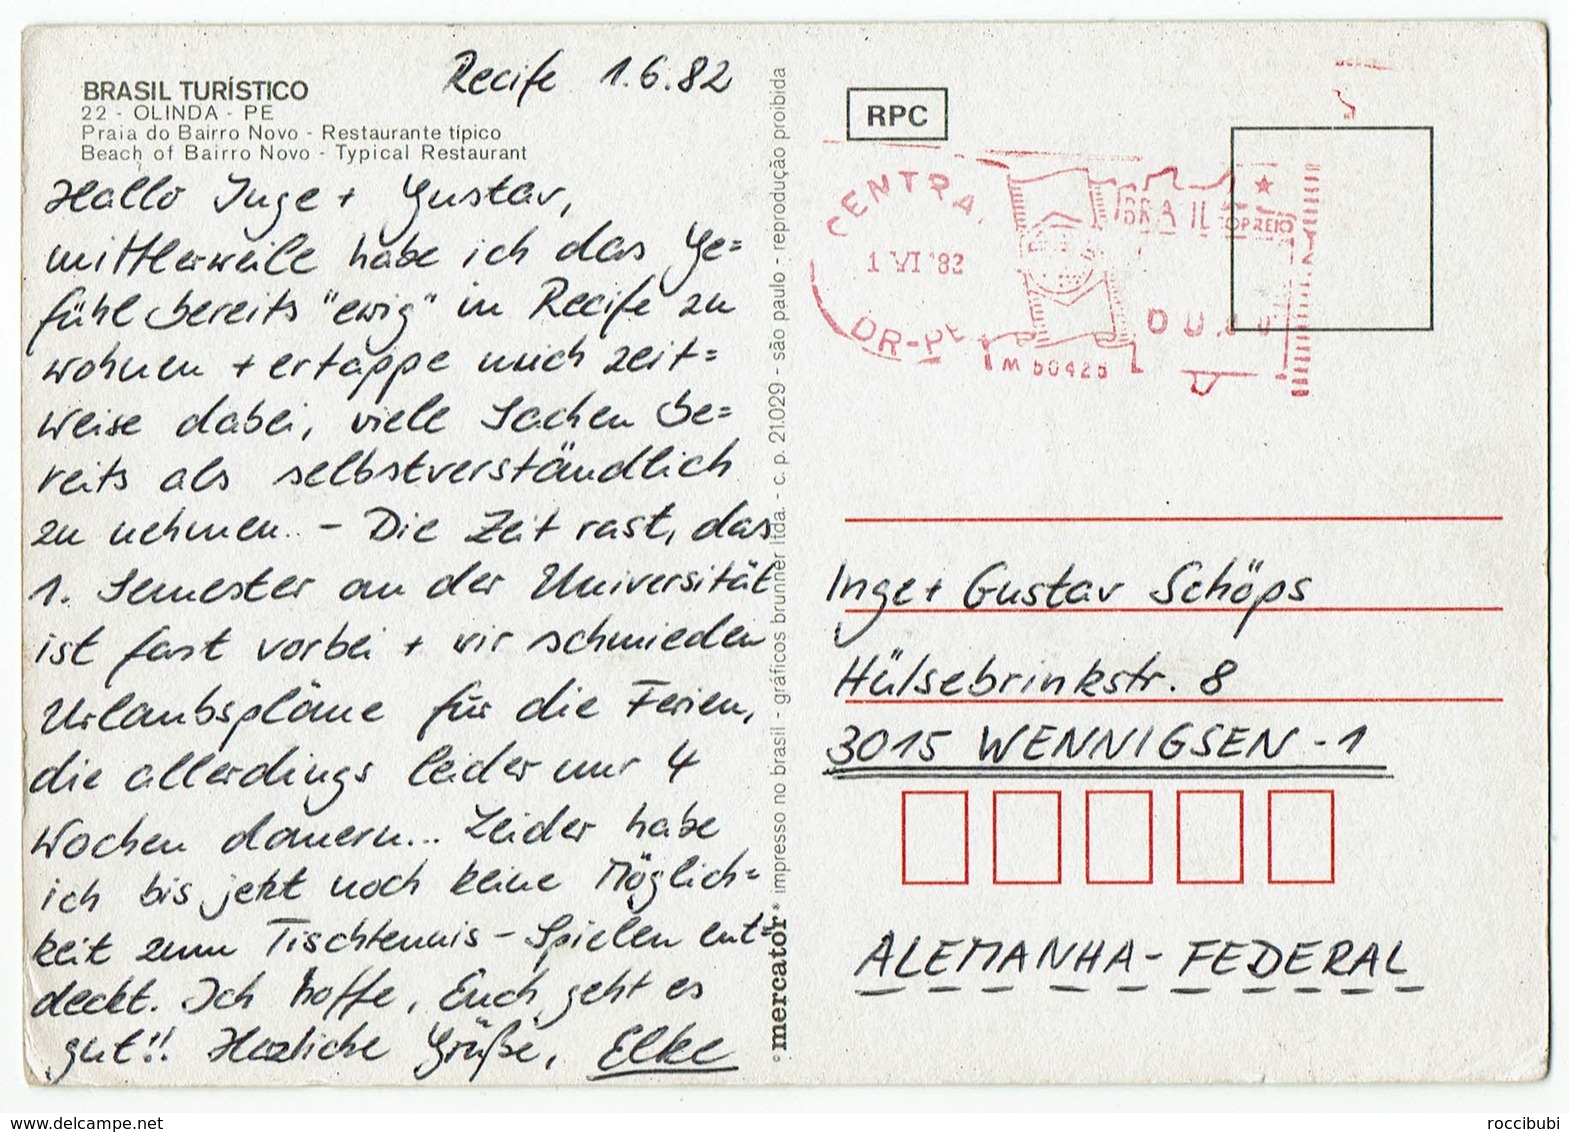 BRASIL TURÍSTICO
22 - OLINDA - PE
Praia do Bairro Novo - Restaurante típico
Beach of Bairro Novo - Typical Restaurant
Recife 1.6.82
Hallo Inge + Gustav,
mittlerweile habe ich das Ge=
fühl bereits "ewig" in Recife zu
wohnen + ertappe mich zeit=
weise dabei, viele Sachen be=
reits als selbstverständlich
zu nehmen.. - Die Zeit rast, das
1. Semester an der Universität
ist fast vorbei + wir schmieden
Urlaubspläne für die Ferien,
die allerdings leider nur 4
Wochen dauern... Leider habe
ich bis jetzt noch keine Möglich=
keit zum Tischtennis-Spielen ent=
deckt. Ich hoffe, Euch geht es
gut!! Herzliche Grüße, Elke
mercator impresso no brasil - gráficos brunner ltda. - c. p. 21.029 - são paulo - reprodução proibida
RPC
CENTRA
1 VI '82
DR-PE
BRA IL
CORREIO
M 50425
Inge + Gustav Schöps
Hülsebrinkstr. 8
3015 WENNIGSEN - 1
ALEMANHA - FEDERAL
roccibubi